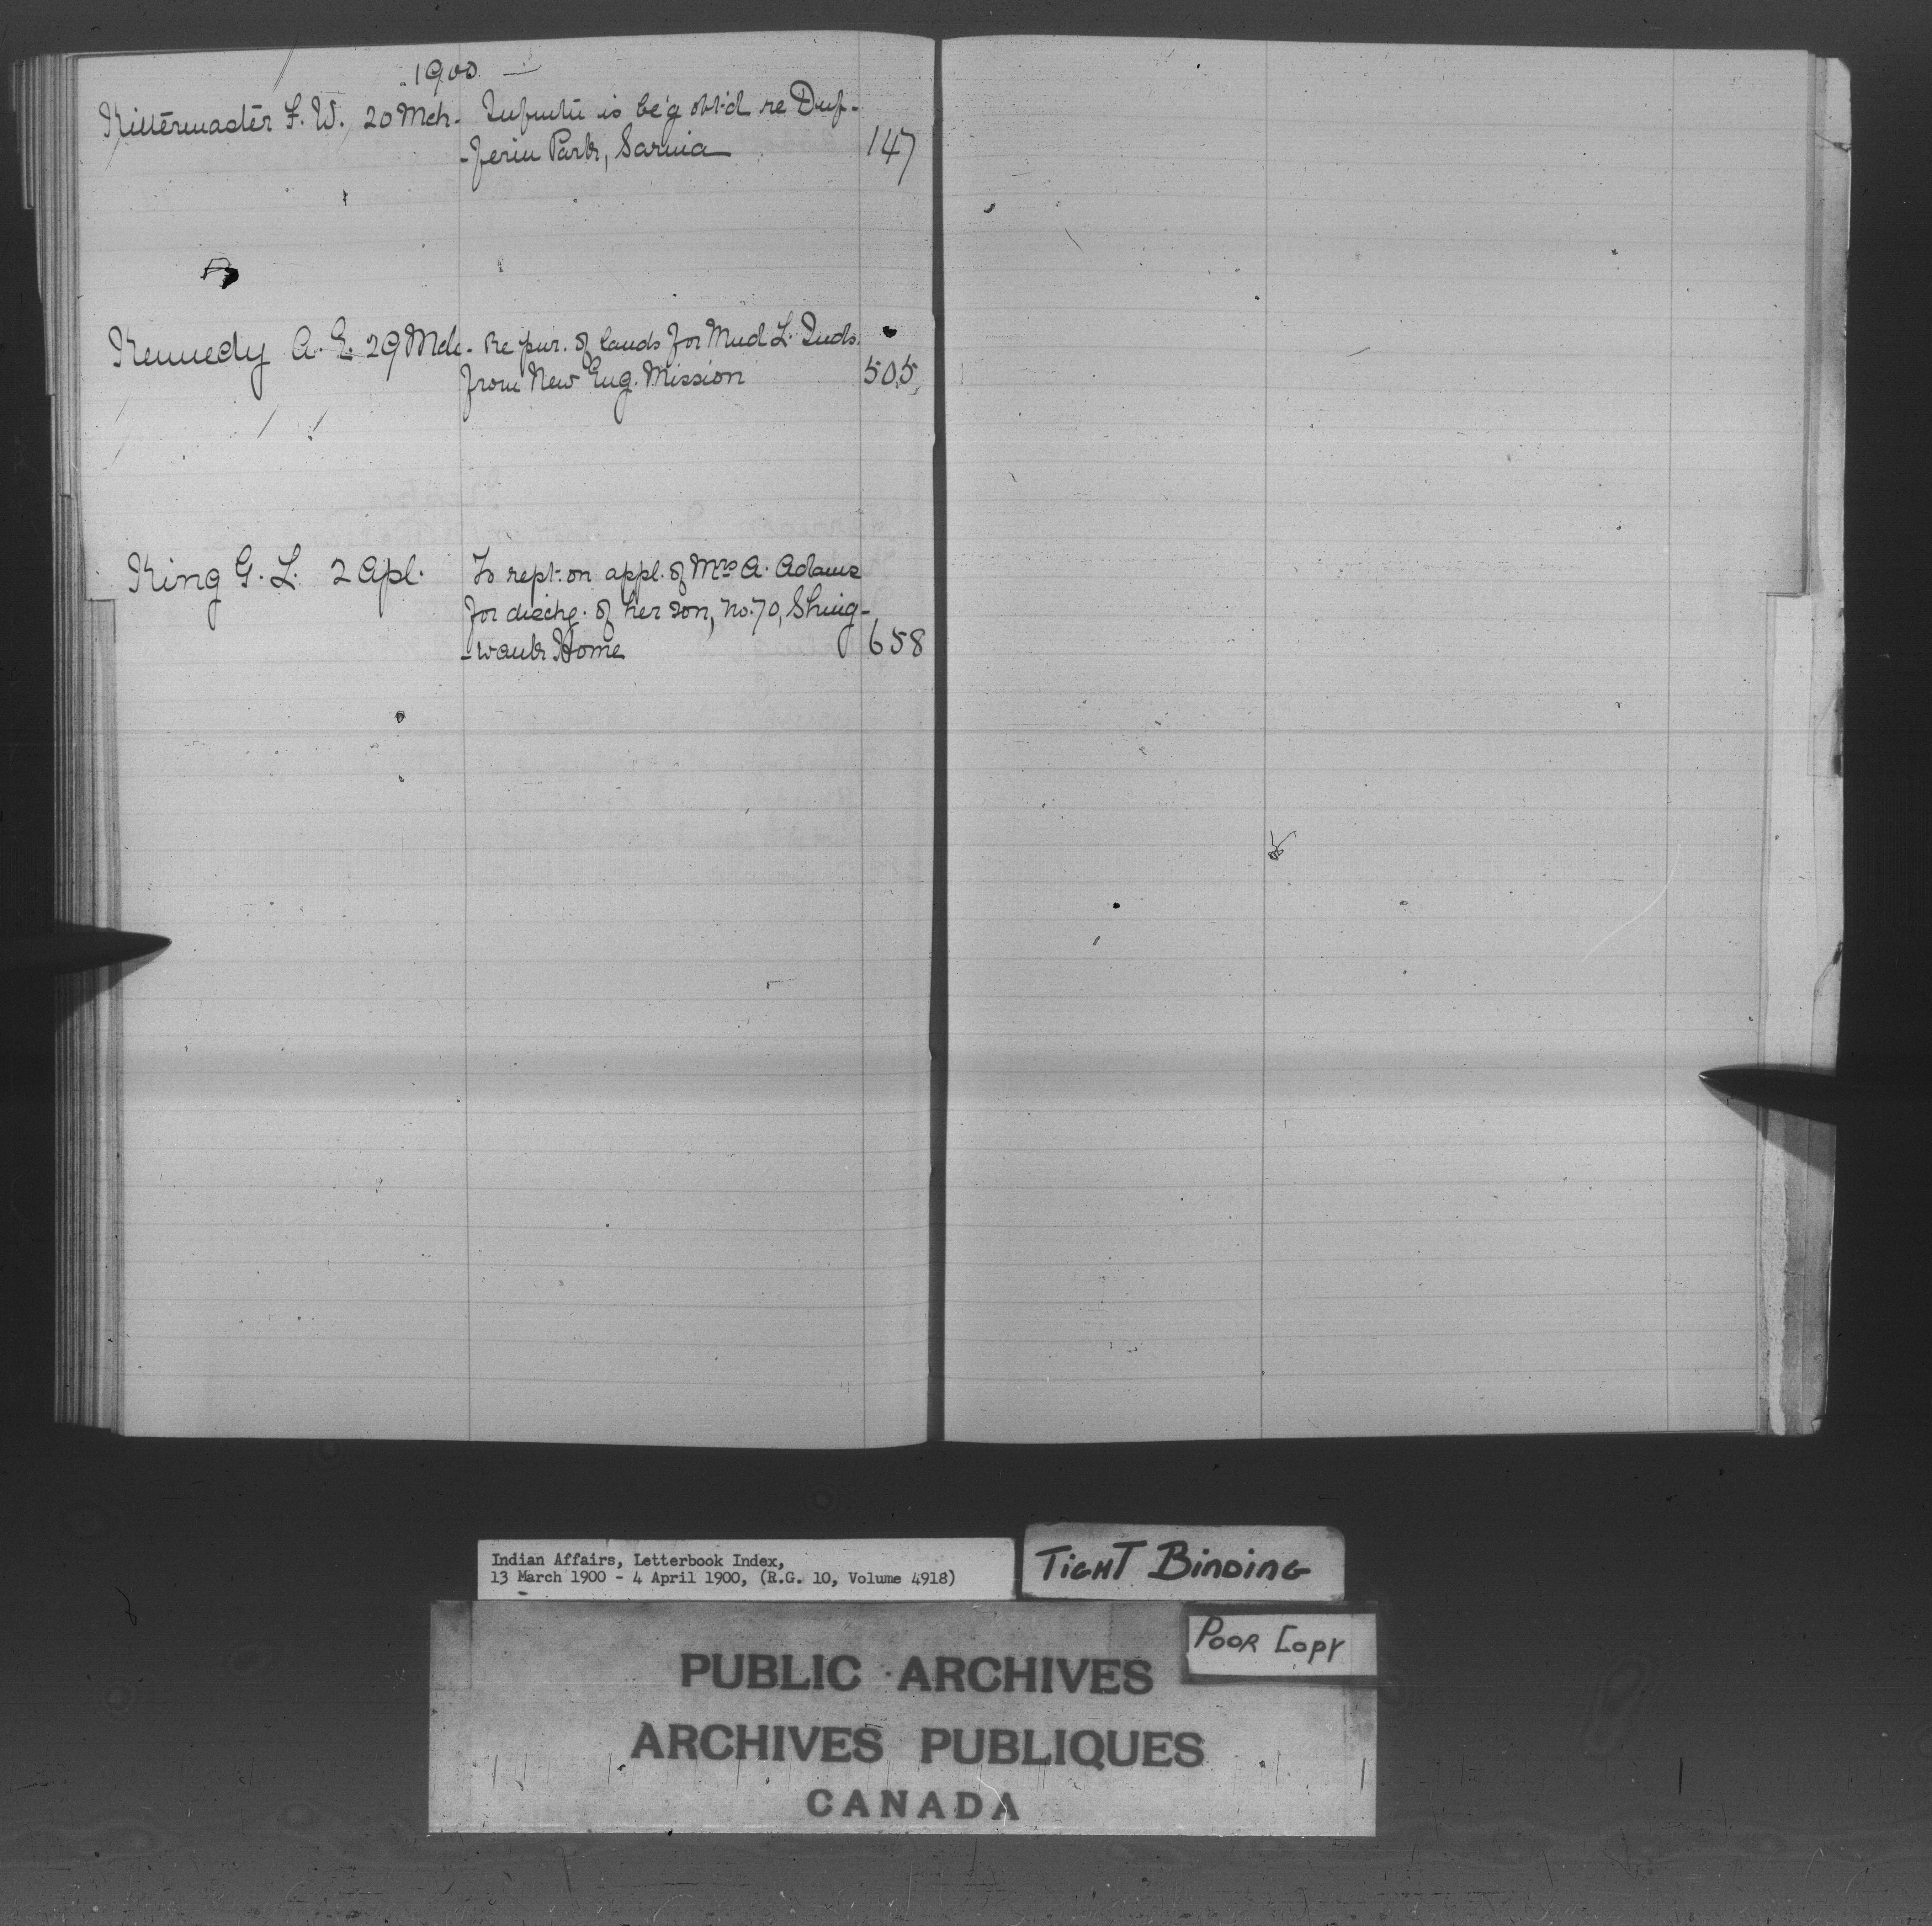 1900
Kittermaster F. W. 20 Mch. Infmtn is be'g obt'd re Duf-
-ferin Park, Sarnia 147
Kennedy A. E. 29 Mch. Re pur. of lands for Mud L. Inds.
from New Eng. Mission 505
King G. L. 2 Apl. To rept. on appl. of Mrs A. Adams
for dischg. of her son, No. 70, Shing-
-wauk Home 658
Indian Affairs, Letterbook Index,
13 March 1900 - 4 April 1900, (R.G. 10, Volume 4918)
TIGHT BINDING
POOR COPY
PUBLIC ARCHIVES
ARCHIVES PUBLIQUES
CANADA